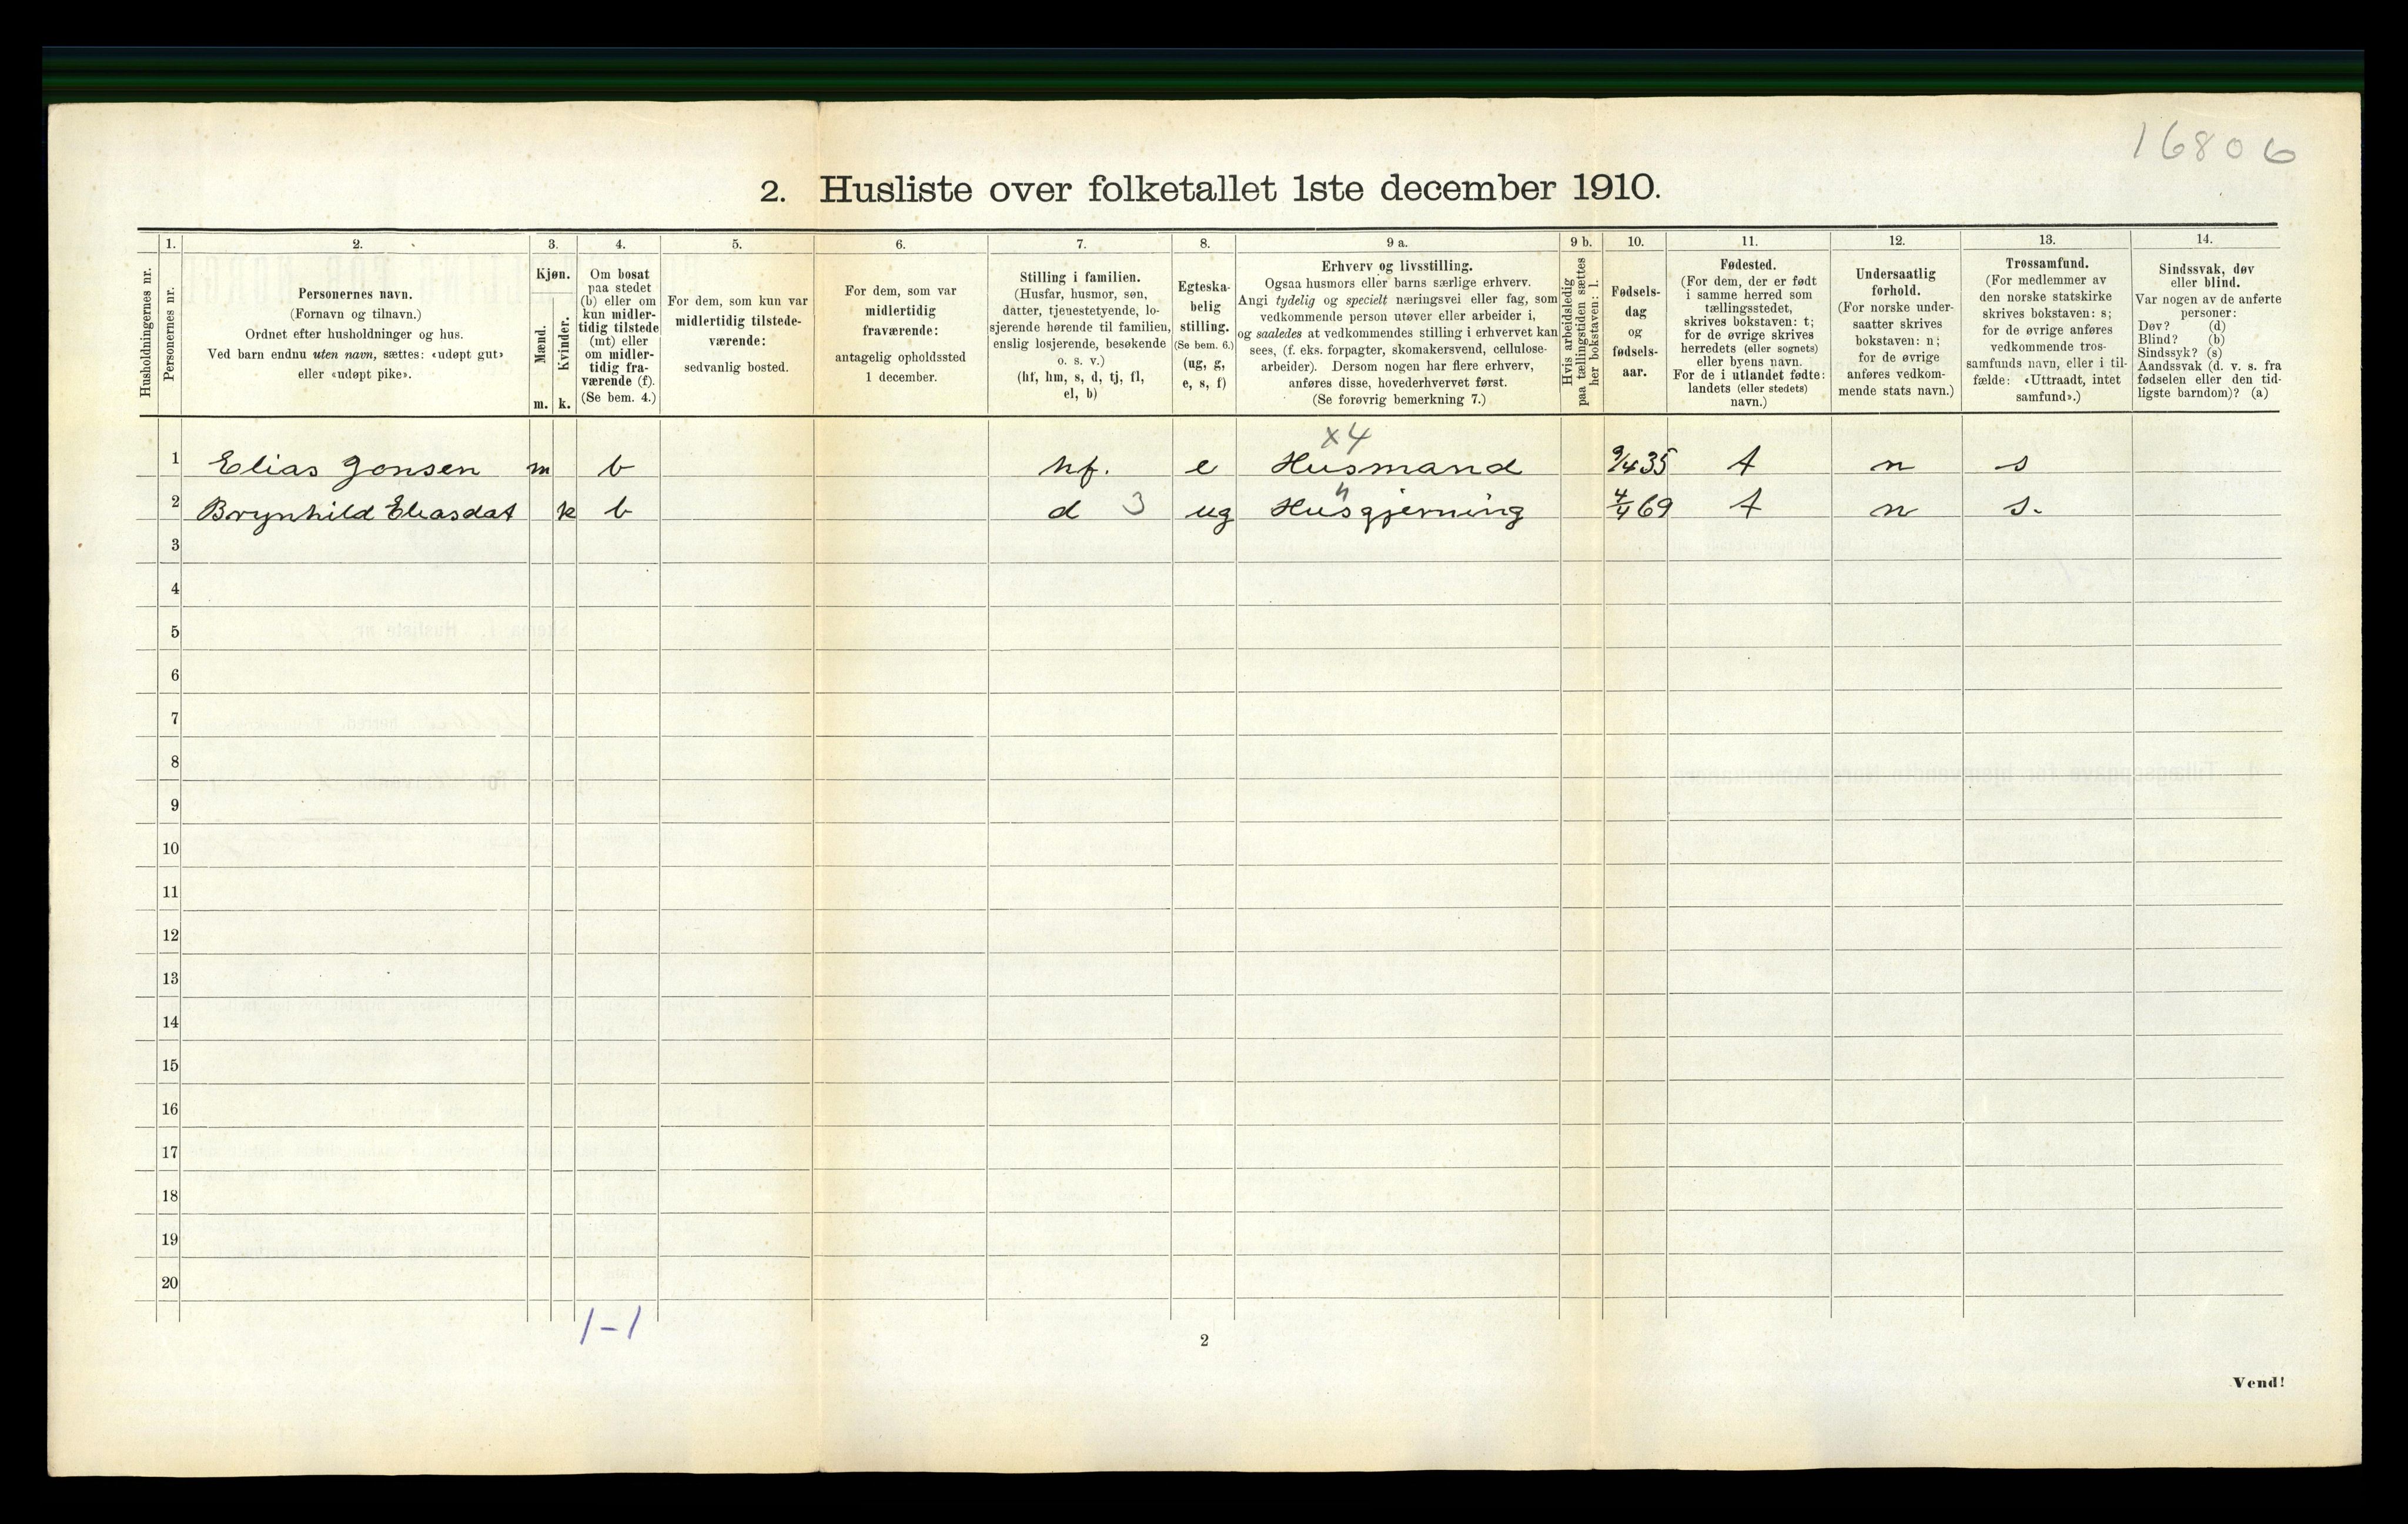 16806
2. Husliste over folketallet 1ste december 1910.
1. 2. 3. 4. 5. 6. 7. 8. 9 a. 9 b. 10. 11. 12. 13. 14.
Husholdningernes nr.
Personernes nr.
Personernes navn.
(Fornavn og tilnavn.)
Ordnet efter husholdninger og hus.
Ved barn endnu uten navn, sættes: «udøpt gut»
eller «udøpt pike».
Kjøn.
Mænd.
Kvinder.
m. k.
Om bosat
paa stedet
(b) eller om
kun midler-
tidig tilstede
(mt) eller
om midler-
tidig fra-
værende (f).
(Se bem. 4.)
For dem, som kun var
midlertidig tilstede-
værende:
sedvanlig bosted.
For dem, som var
midlertidig
fraværende:
antagelig opholdssted
1 december.
Stilling i familien.
(Husfar, husmor, søn,
datter, tjenestetyende, lo-
sjerende hørende til familien,
enslig losjerende, besøkende
o. s. v.)
(hf, hm, s, d, tj, fl,
el, b)
Egteska-
belig
stilling.
(Se bem. 6.)
(ug, g,
e, s, f)
Erhverv og livsstilling.
Ogsaa husmors eller barns særlige erhverv.
Angi tydelig og specielt næringsvei eller fag, som
vedkommende person utøver eller arbeider i,
og saaledes at vedkommendes stilling i erhvervet kan
sees, (f. eks. forpagter, skomakersvend, cellulose-
arbeider). Dersom nogen har flere erhverv,
anføres disse, hovederhvervet først.
(Se forøvrig bemerkning 7.)
Hvis arbeidsledig
paa tællingstiden sættes
her bokstaven: l.
Fødsels-
dag
og
fødsels-
aar.
Fødested.
(For dem, der er født
i samme herred som
tællingsstedet,
skrives bokstaven: t;
for de øvrige skrives
herredets (eller sognets)
eller byens navn.
For de i utlandet fødte:
landets (eller stedets)
navn.)
Undersaatlig
forhold.
(For norske under-
saatter skrives
bokstaven: n;
for de øvrige
anføres vedkom-
mende stats navn.)
Trossamfund.
(For medlemmer av
den norske statskirke
skrives bokstaven: s;
for de øvrige anføres
vedkommende tros-
samfunds navn, eller i til-
fælde: «Uttraadt, intet
samfund».)
Sindssvak, døv
eller blind.
Var nogen av de anførte
personer:
Døv? (d)
Blind? (b)
Sindssyk? (s)
Aandssvak (d. v. s. fra
fødselen eller den tid-
ligste barndom)? (a)
x4
1 Elias Jonsen m b hf. e Husmand 9/4 35 t n s
2 Brynhild Eliasdat k b d 3 ug Husgjerning 4/4 69 t n s.
3
4
5
6
7
8
9
10
11
12
13
14
15
16
17
18
19
20
1-1
2
Vend!